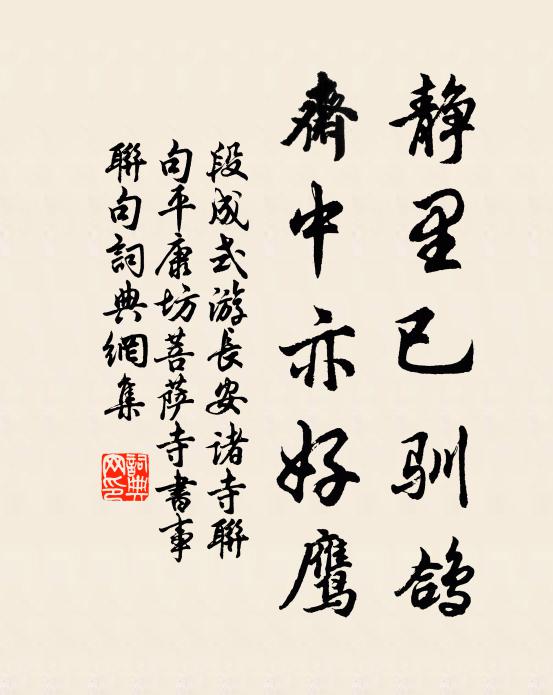 静里已驯鸽
齋中亦好鹰
段成式游長安诸寺聯
句平康坊菩萨寺書事
聯句詞典網集
詞典
网印